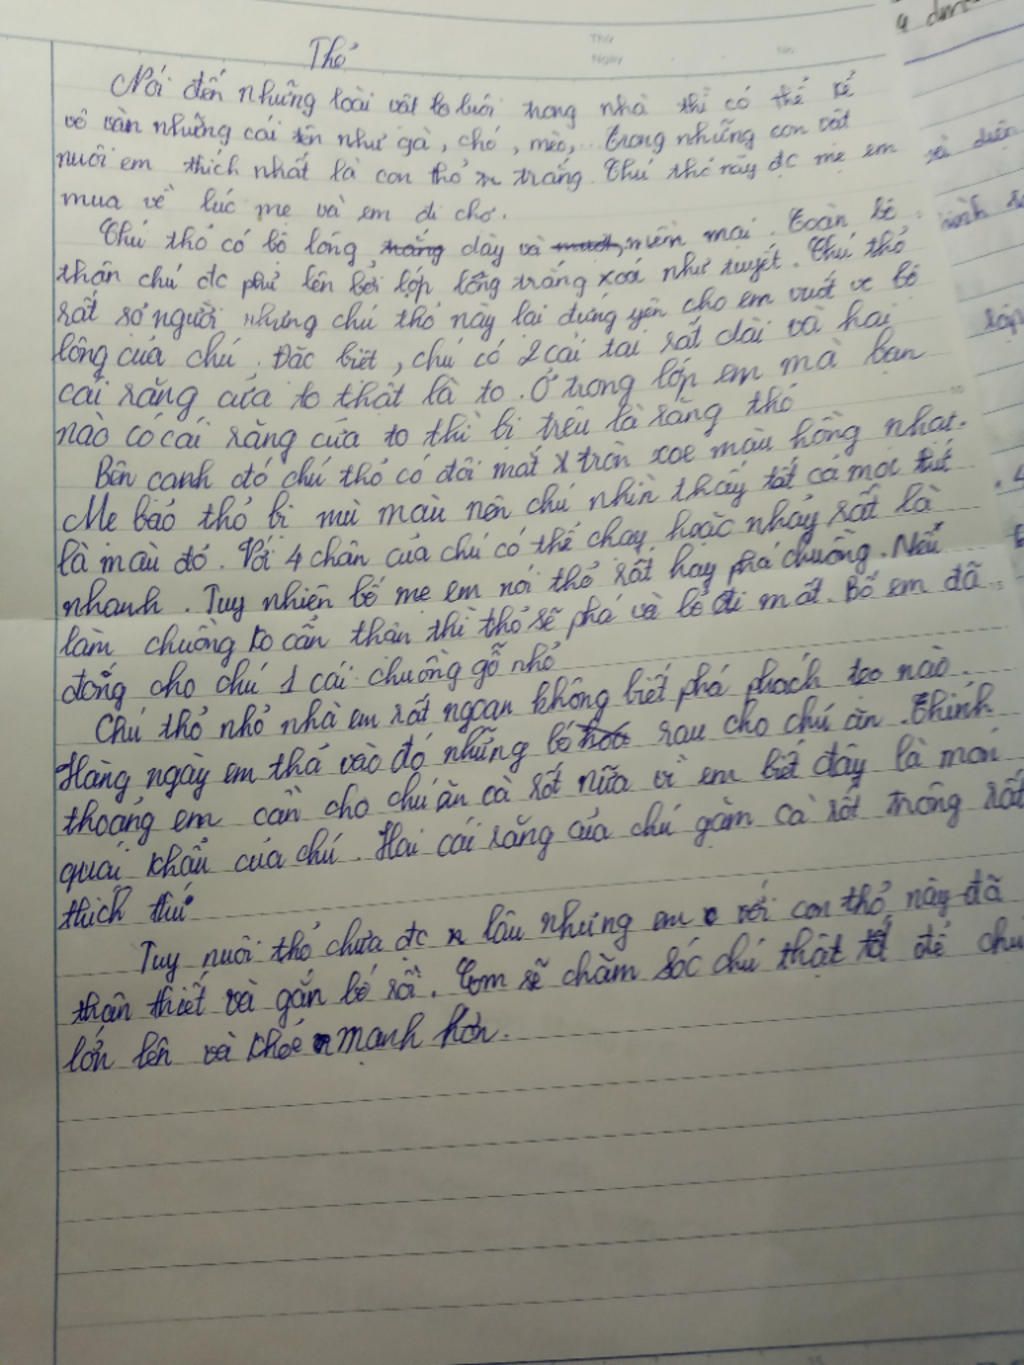 Thỏ
Nói đến những loài vật to lưới trong nhà thì có thể kể
vô vàn những cái tên như gà, chó, mèo,.. trong những con vật
nuôi em thích nhất là con thỏ trắng. Chú thỏ này đc mẹ em
mua về lúc mẹ và em đi chơ.
Chú thỏ có bộ lông dày và mềm mại. Toàn bộ
thân chú đc phủ lên bởi lớp lông trắng xoá như tuyết. Chú thỏ
rất sợ người nhưng chú thỏ này lại đứng yên cho em vuốt ve bộ
lông của chú. Đặc biệt, chú có 2 cái tai rất dài và hai
cái răng cửa to thật là to. Ở trong lớp em mà bạn
nào có cái răng cửa to thì bị trêu là răng thỏ
Bên cạnh đó chú thỏ có đôi mắt tròn xoe màu hồng nhạt.
Mẹ bảo thỏ bị mù màu nên chú nhìn thấy tất cả mọi thứ
là màu đỏ. Với 4 chân của chú có thể chạy hoặc nhảy rất là
nhanh. Tuy nhiên bố mẹ em nói thỏ rất hay phá chuồng. Nếu
làm chuồng ko cẩn thận thì thỏ sẽ phá và bỏ đi mất. Bố em đã
đóng cho chú 1 cái chuồng gỗ nhỏ
Chú thỏ nhỏ nhà em rất ngoan không biết phá phách tẹo nào.
Hàng ngày em thả vào đó những bó rau cho chú ăn. Thỉnh
thoảng em còn cho chú ăn cà rốt nữa vì em biết đây là món
quái khẩu của chú. Hai cái răng của chú gặm cà rốt trông rất
thích thú
Tuy nuôi thỏ chưa đc lâu nhưng em với con thỏ này đã
thân thiết và gắn bó rồi. Em sẽ chăm sóc chú thật tốt để chú
lớn lên và khoẻ mạnh hơn.